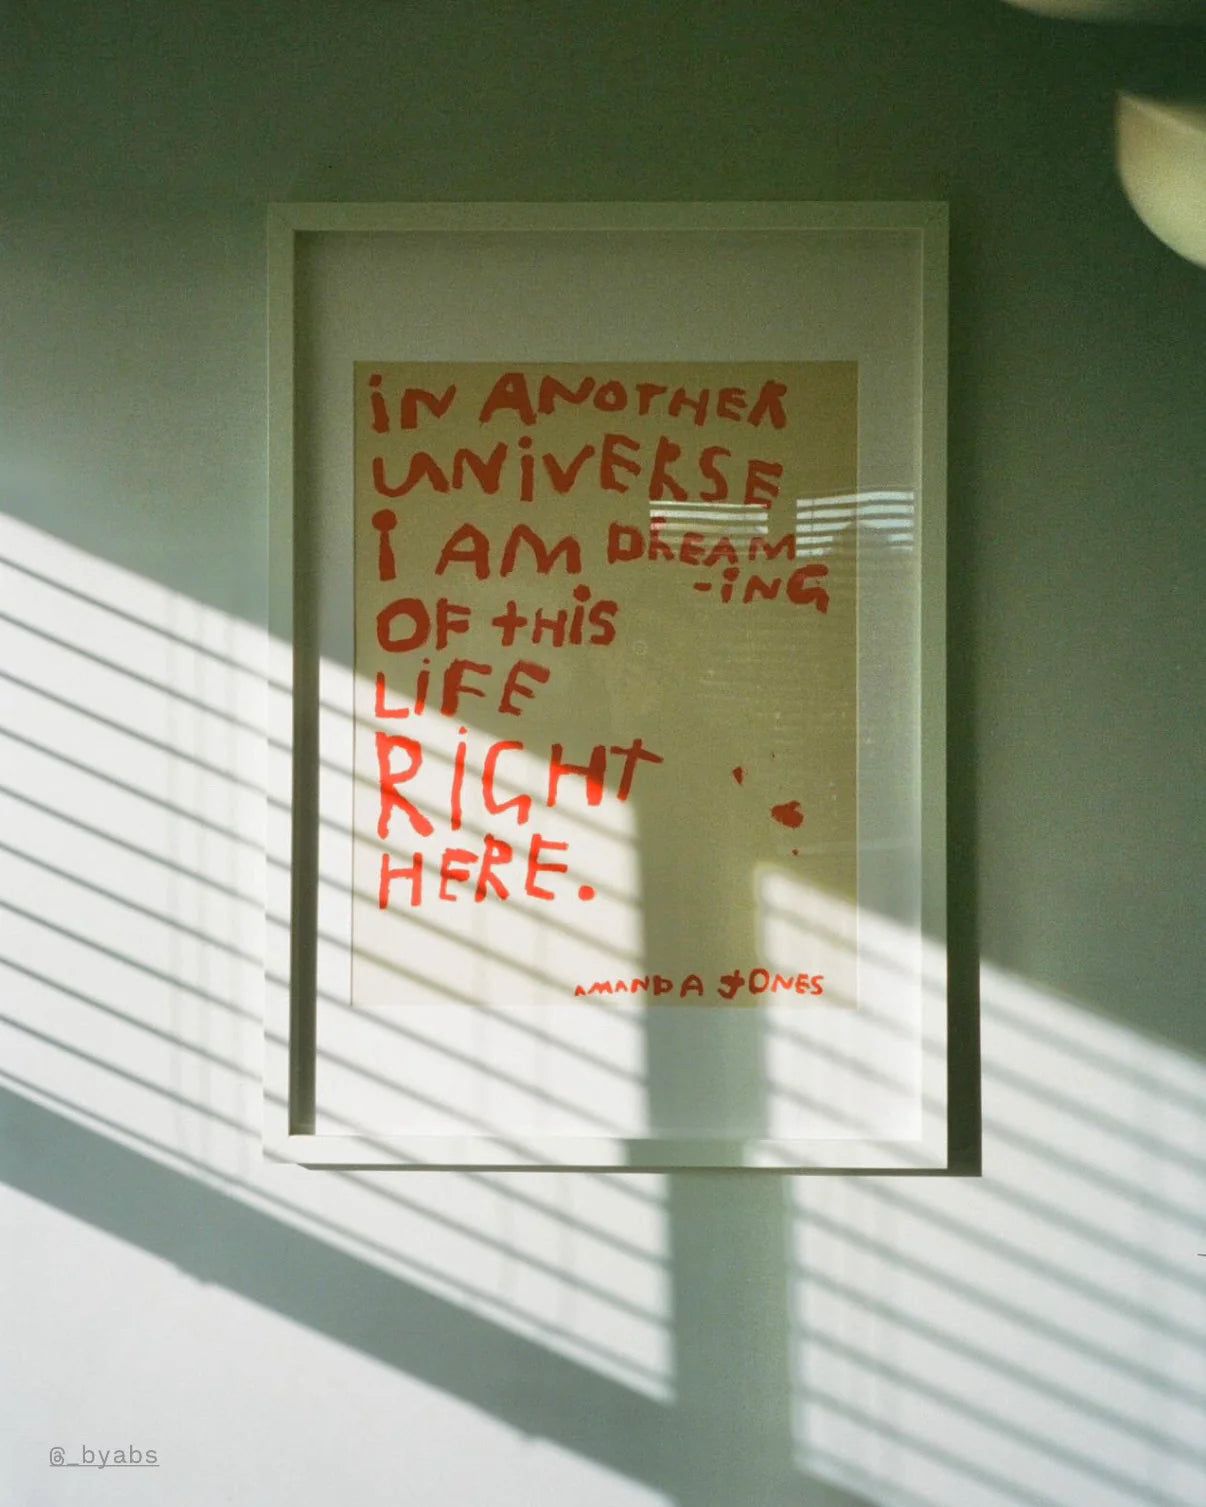 iN ANOTHER
UNiVERSE
I AM DREAM
-iNG
OF tHiS
LiFE
RiGHt
HERE.
AMANDA JONES
@_byabs